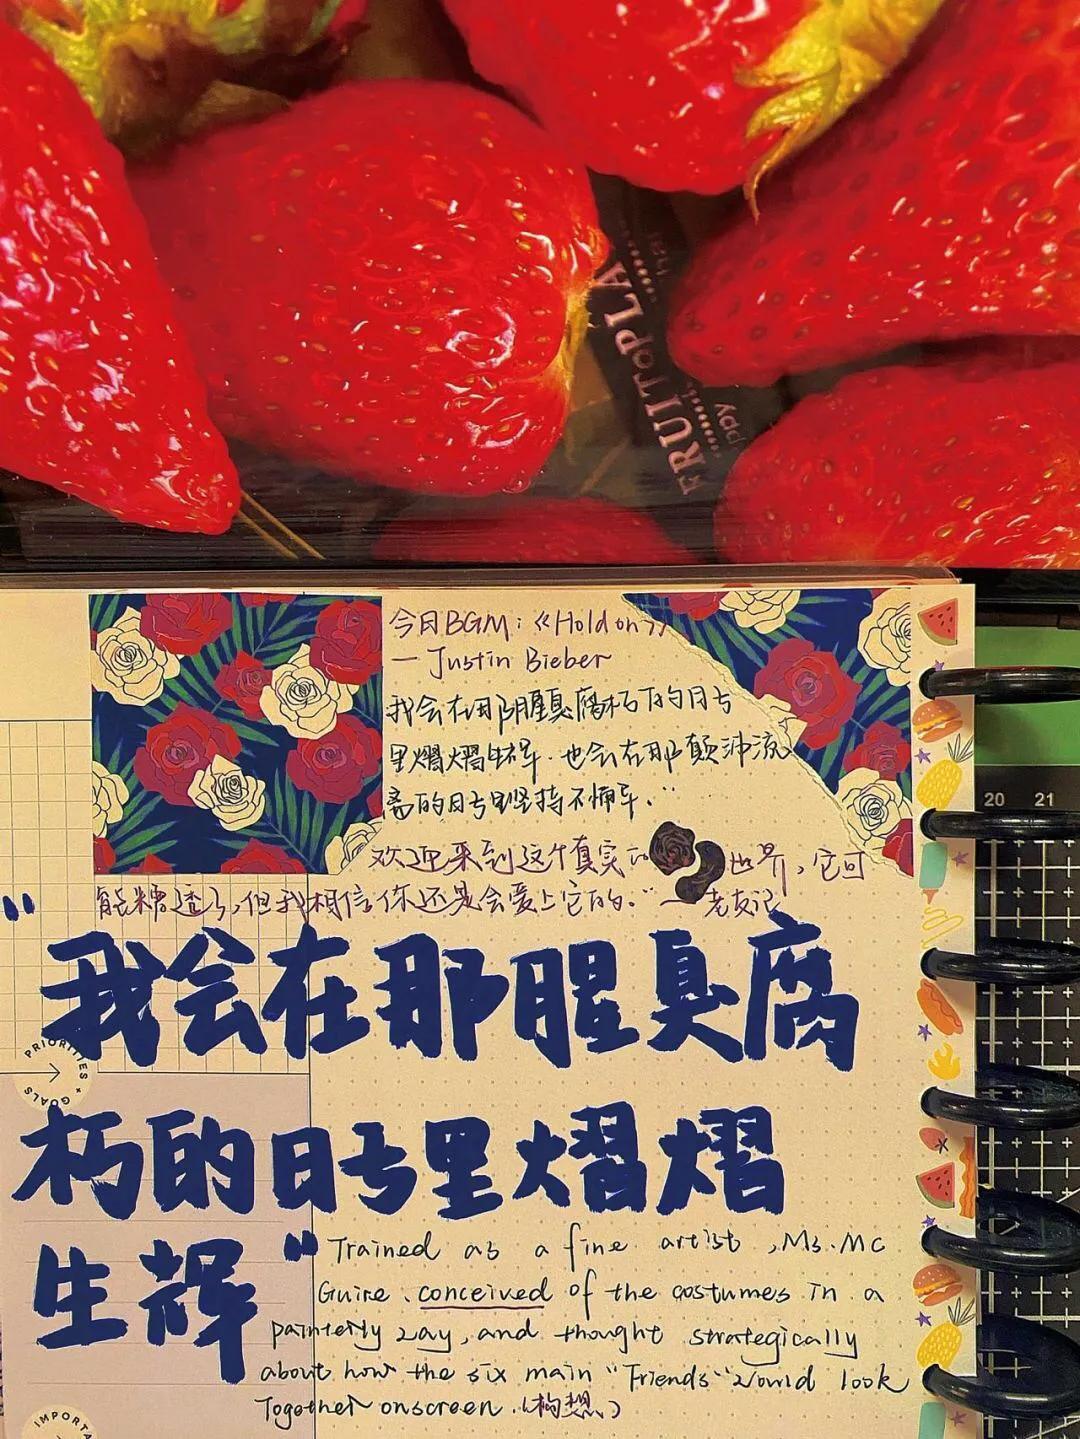 FRUITOPLA
今日BGM:《Hold on》
— Justin Bieber
我会在那腥臭腐朽的日子
里熠熠生辉.也会在那颠沛流
离的日子里坚持不懈.”
欢迎来到这个真实的世界,它可
能糟透了,但我相信你还是会爱上它的。” —老友记
“我会在那腥臭腐
朽的日子里熠熠
生辉”
Trained as a fine artist, Ms. Mc
Guire conceived of the costumes in a
painterly way, and thought strategically
about how the six main "Friends" would look
Together onscreen. (构想)
PRIORITIES + GOALS
IMPORTA
20 21